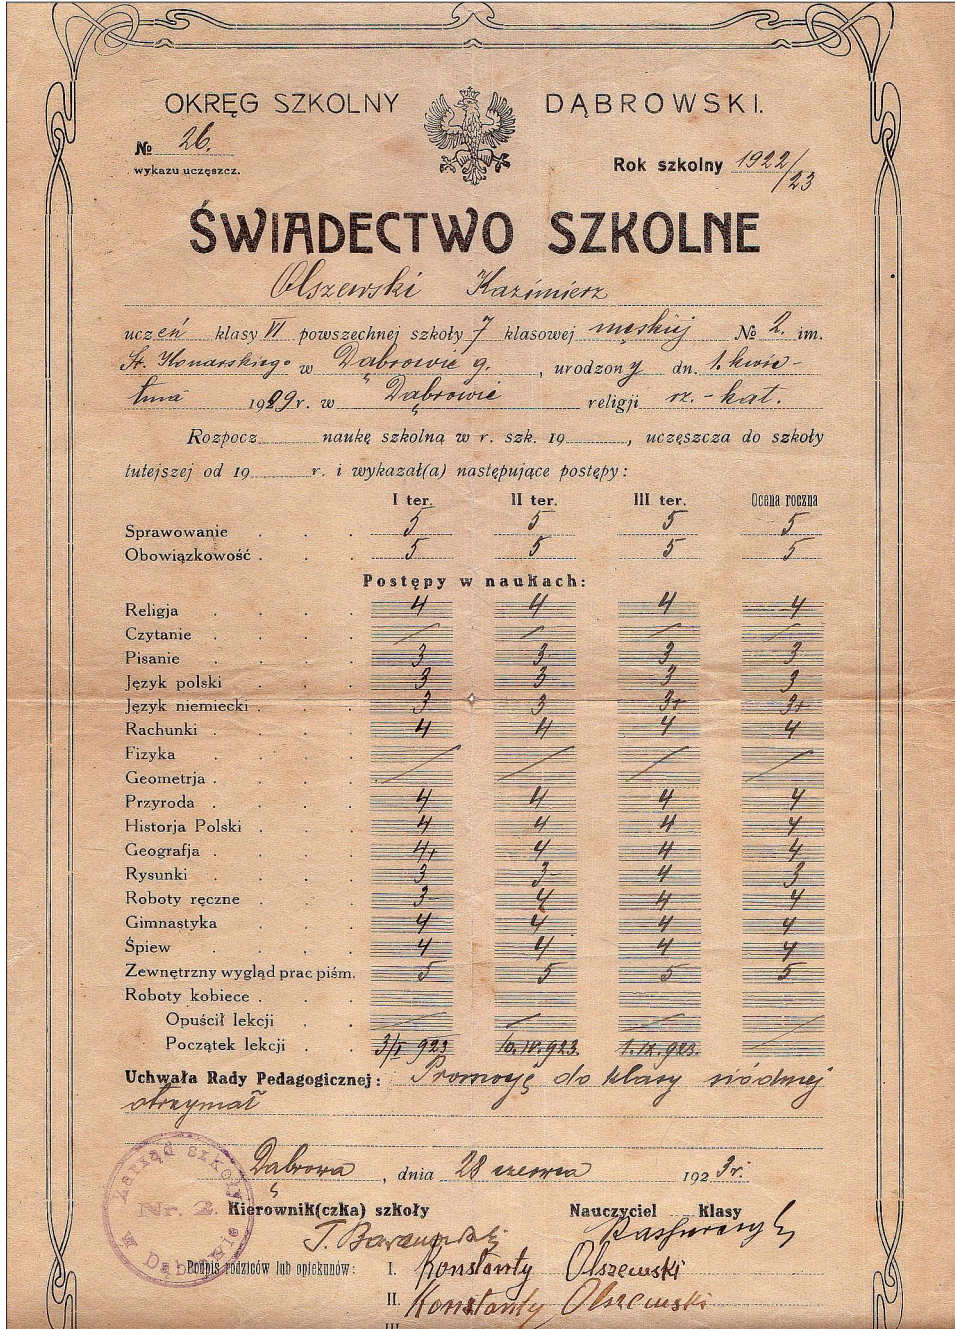 OKRĘG SZKOLNY DĄBROWSKI.
№ 26.
wykazu uczęszcz.
Rok szkolny 1922/23
ŚWIADECTWO SZKOLNE
Olszewski Kazimierz
uczeń klasy VI powszechnej szkoły 7 klasowej męskiej № 2. im.
St. Konarskiego w Dąbrowie g., urodzony dn. 1. kwie-
tnia 1909 r. w Dąbrowie religji rz.-kat.
Rozpocz naukę szkolną w r. szk. 19 , uczęszcza do szkoły
tutejszej od 19 r. i wykazał(a) następujące postępy:
I ter. II ter. III ter. Ocena roczna
Sprawowanie 5 5 5 5
Obowiązkowość 5 5 5 5
Postępy w naukach:
Religja 4 4 4 4
Czytanie / / / /
Pisanie 3 3 3 3
Język polski 3 3 3 3
Język niemiecki 3 3 3+ 3+
Rachunki 4 4 4 4
Fizyka
Geometrja
Przyroda 4 4 4 4
Historja Polski 4 4 4 4
Geografja 4+ 4 4 4
Rysunki 3 3- 4 3
Roboty ręczne 3- 4 4 4
Gimnastyka 4 4 4 4
Śpiew 4 4 4 4
Zewnętrzny wygląd prac piśm. 5 5 5 5
Roboty kobiece
Opuścił lekcji / / /
Początek lekcji 3/I 923 10.IV.923. 1.IX.923.
Uchwała Rady Pedagogicznej: Promocję do klasy siódmej
otrzymał
Dąbrowa, dnia 28 czerwca 1923 r.
Zarząd szkoły Nr. 2. w Dąbrowie
Kierownik(czka) szkoły Nauczyciel klasy
Podpis rodziców lub opiekunów: I. Konstanty Olszewski
II. Konstanty Olszewski
III